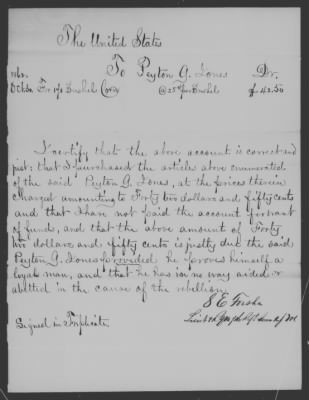 The United States
To Peyton G. Jones Dr.
1862.
Octbr For 170 Bushels Corn @ 25¢ per Bushel $42.50
I certify that the above account is correct and
just; that I purchased the articles above enumerated
of the said Peyton G. Jones, at the prices therein
charged amounting to Forty two dollars and fifty cents
and that I have not paid the account for want
of funds, and that the above amount of Forty
two dollars and fifty cents is justly due the said
Peyton G. Jones provided he proves himself a
loyal man, and that he has in no way aided or
abetted in the cause of the rebellion.
S E
Signed in Triplicate
Lieut &